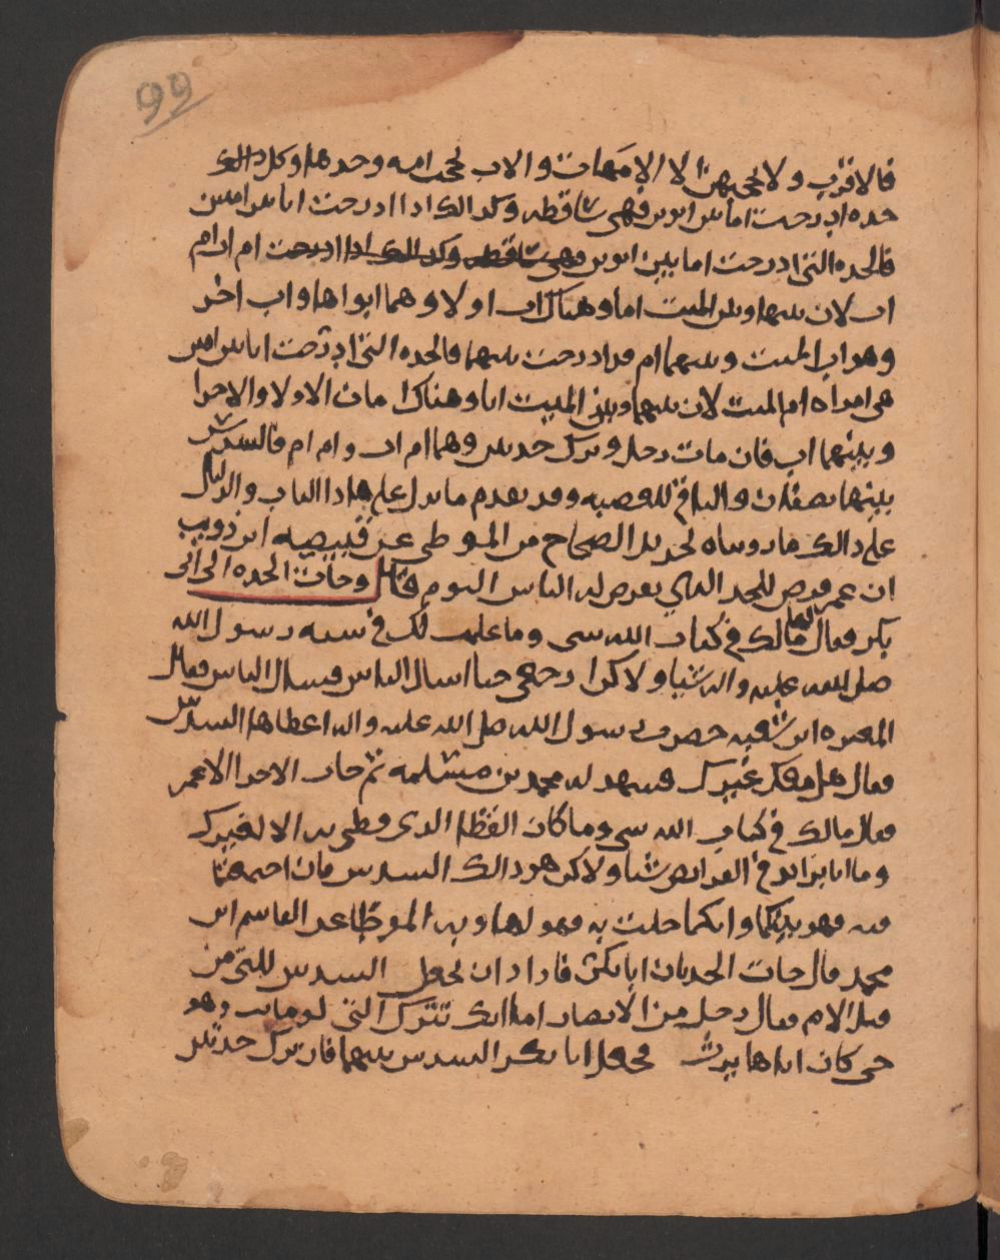 99
فالاقرب ولا يحجبهن الا الامهات والاب يحجب امه وحدها وكل
جده ادرجت اما بين ابوين فهي ساقطه وكدالك ادا ادرجت ابا بين امين
فالجده التى ادرجت اما بين ابوين فهي ساقطه وكدالك ادا ادرجت ام اب ام
اب لان بينها وبين الميت اما وهناك اب اولا وهما ابواها واب اخر
وهو اب الميت وبينهما ام قد ادرجت بينهما فالجده التى ادرجت ابا بين امين
هي امراه ام الميت لان بينهما وبين الميت ابا وهناك امان الاولا والاخرا
وبينهما اب فان مات رجل وترك جدتين وهما ام اب وام ام فالسدس
بينهما نصفان والباقي للعصبه وقد تقدم ما يدل على هادا الباب والدليل
على دالك ما رويناه لجديد الصحاح من الموطى عن قبيصه ابن دويب
ان عمر فرض للجد الدي يفرض له الناس اليوم قال وجات الجده الى ابي
بكر فقال لها مالك في كتاب الله شى وما علمت لك في سنه رسول الله
صلى الله عليه واله شيا ولاكن ارجعي حتا اسال الناس فسال الناس فقال
المغيره ابن شعبه حضرت رسول الله صلى الله عليه واله اعطاها السدس
فقال هل معك غيرك فشهد له محمد بن مسلمه ثم جات الاخرا الا عمر
فقال مالك في كتاب الله شى وما كان القظا الدى قظي به الا لغيرك
وما انا بزايد في الفرايض شيا ولاكن هو دالك السدس فان اجتمعتما
فيه فهو بينكما وايكما خلت به فهو لها وبه الموطا عن القاسم ابن
محمد قال جات الجدتان ابا بكر فاراد ان يجعل السدس للتي من
قبل الام فقال رجل من الانصار اما انك تترك التى لو مات وهو
حي كان اياها يرث فجعل ابا بكر السدس بينهما فان ترك جدتين